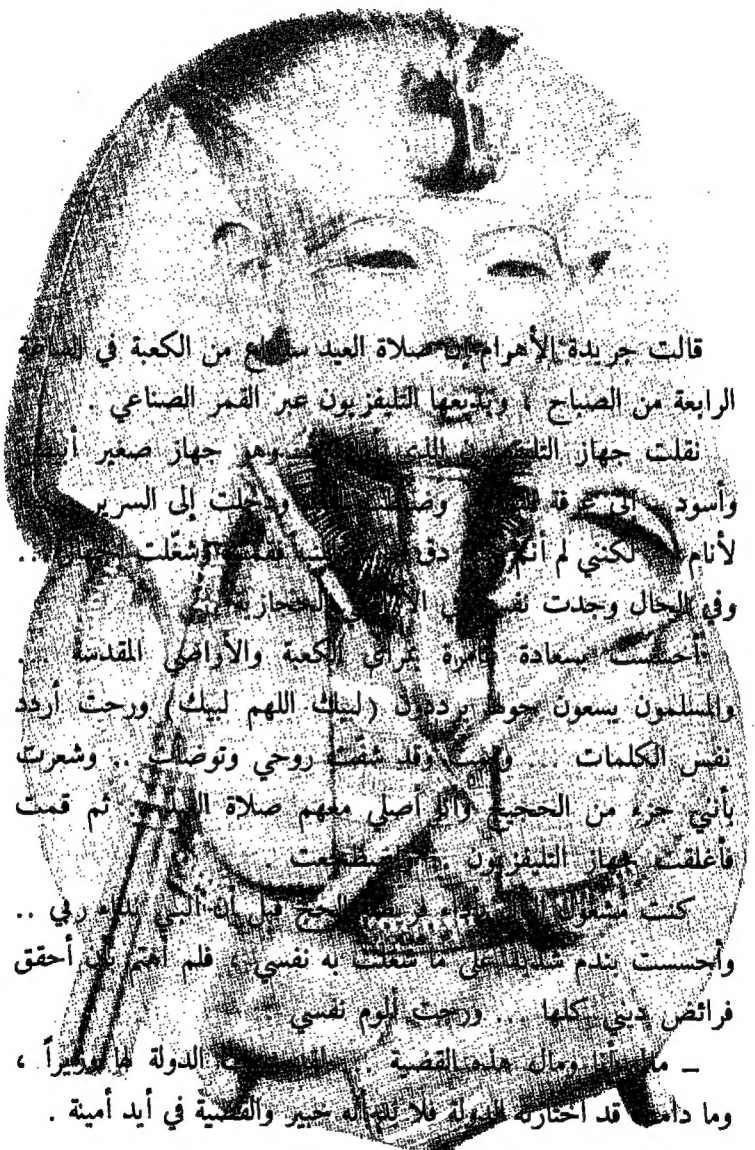 قالت جريدة الأهرام إن صلاة العيد ستذاع من الكعبة في الساعة
الرابعة من الصباح ، ويذيعها التليفزيون عبر القمر الصناعي .
نقلت جهاز التليفزيون الذي وهو جهاز صغير أبيض
وأسود إلى غرفة ودخلت إلى السرير
لأنام لكنني لم أنم دق فقمت وشغّلت الجهاز ..
وفي الحال وجدت نفسي في الأراضي الحجازية
أحسست بسعادة غامرة لمرأى الكعبة والأراضي المقدسة ..
والمسلمون يسعون حولها يرددون (لبيك اللهم لبيك) ورحت أردد
نفس الكلمات ... وقد شفّت روحي وتوضأت .. وشعرت
بأنني جزء من الحجيج وأنا أصلي معهم صلاة العيد . ثم قمت
فأغلقت جهاز التليفزيون واضطجعت .
كنت مشغول البال بأداء فريضة الحج قبل أن ألبي نداء ربي ..
وأحسست بندم شديد على ما شغلت به نفسي ، فلم أهتم بأن أحقق
فرائض ديني كلها ... ورحت ألوم نفسي
ــ مالي أنا ومال هذه القضية . الدولة لها وزيراً ،
وما دامت قد اختارته الدولة فلا بد أنه خبير والقضية في أيد أمينة .